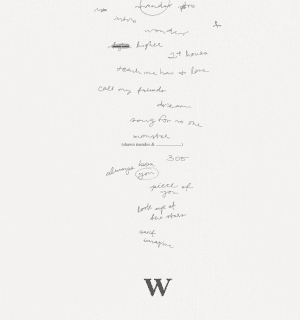 wonder
higher
24 hours
teach me how to love
call my friends
dream
song for no one
monster
(shawn mendes &
305
always been
you
piece of
you
look up at
the stars
can't
imagine
W